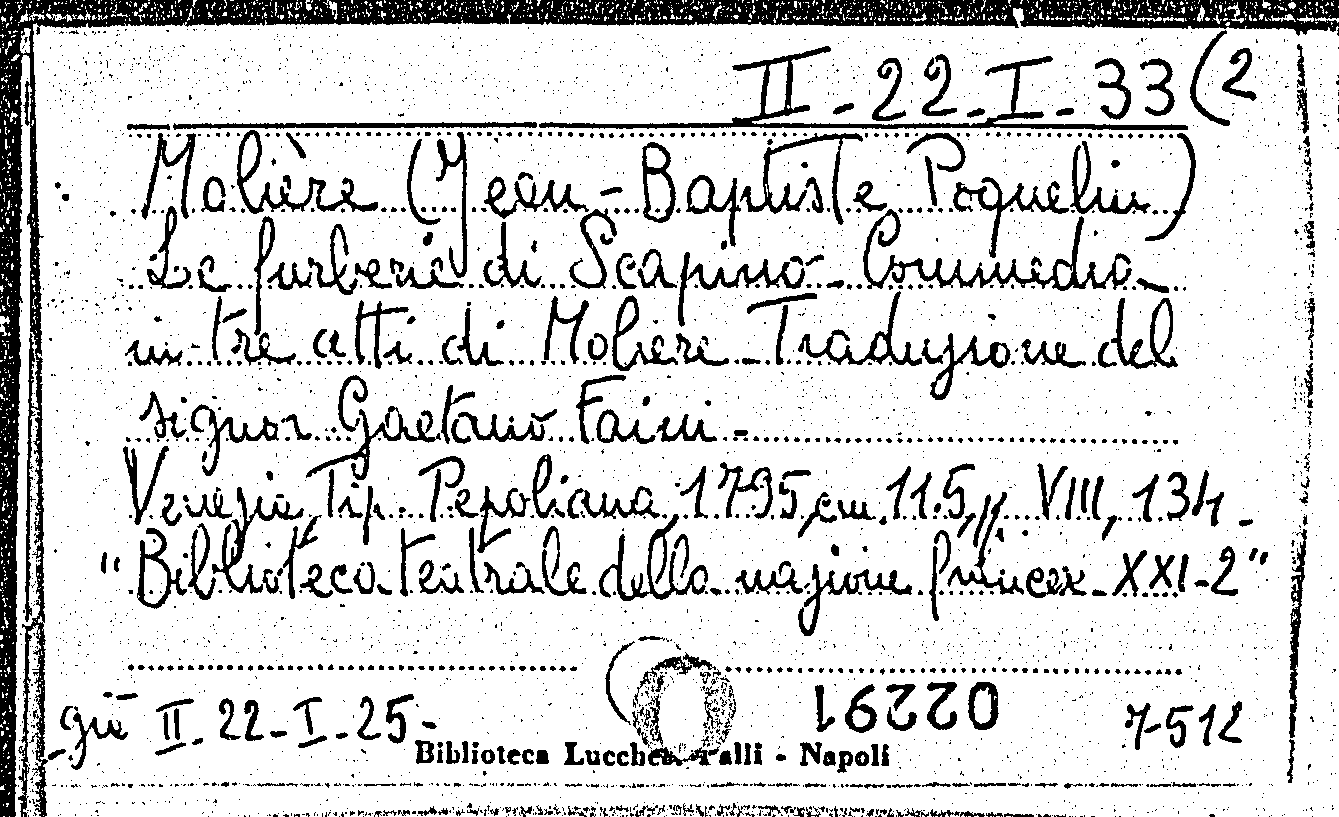 II-22-I-33(2
Molière (Jean-Baptiste Poquelin)
Le furberie di Scapino. Commedia
in tre atti di Moliere. Traduzione del
signor Gaetano Faini-
Venezia, Tip. Pepoliana, 1795, cm. 11.5, pp. VIII, 134-
"Biblioteca teatrale della nazione francex. XXI-2"
già II-22-I-25- 02291 7-512
Biblioteca Lucchesi Palli - Napoli